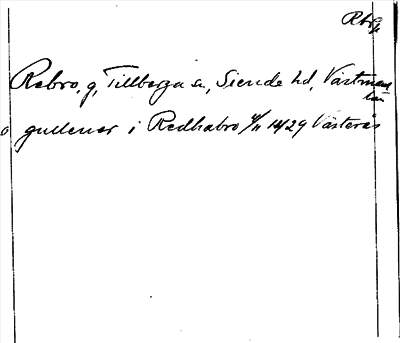 Rbg
Rebro, g, Tillberga sn, Siende hd, Västman
land
o gullener i Redhabro 4/11 1429 Västerås